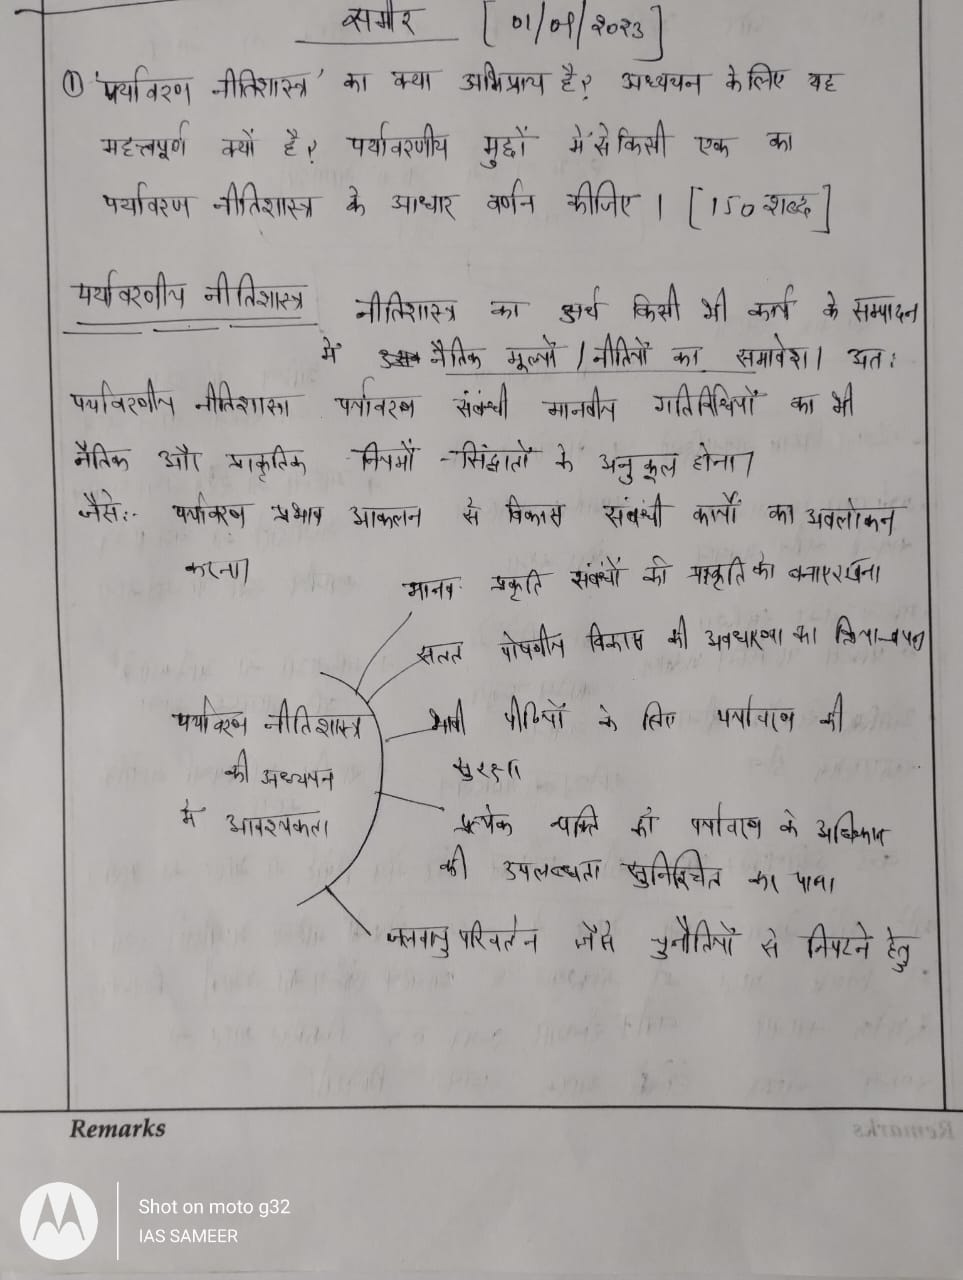 समीर [01/09/2023]
① 'पर्यावरण नीतिशास्त्र' का क्या अभिप्राय है? अध्ययन के लिए यह
महत्त्वपूर्ण क्यों है? पर्यावरणीय मुद्दों में से किसी एक का
पर्यावरण नीतिशास्त्र के आधार वर्णन कीजिए। [150 शब्द]
पर्यावरणीय नीतिशास्त्र
नीतिशास्त्र का अर्थ किसी भी कार्य के सम्पादन
में नैतिक मूल्यों / नीतियों का समावेश। अतः
पर्यावरणीय नीतिशास्त्र पर्यावरण संबंधी मानवीय गतिविधियों का भी
नैतिक और प्राकृतिक नियमों - सिद्धांतों के अनुकूल होना।
जैसे:- पर्यावरण प्रभाव आकलन से विकास संबंधी कार्यों का अवलोकन
करना।
मानव प्रकृति संबंधों की प्रकृति को बनाए रखना
सतत पोषणीय विकास की अवधारणा का क्रियान्वयन
पर्यावरण नीतिशास्त्र
की अध्ययन
में आवश्यकता
भावी पीढियों के लिए पर्यावरण की
सुरक्षा
प्रत्येक व्यक्ति को पर्यावरण के अधिकार
की उपलब्धता सुनिश्चित कर पाना
जलवायु परिवर्तन जैसे चुनौतियों से निपटने हेतु
Remarks
Shot on moto g32
IAS SAMEER